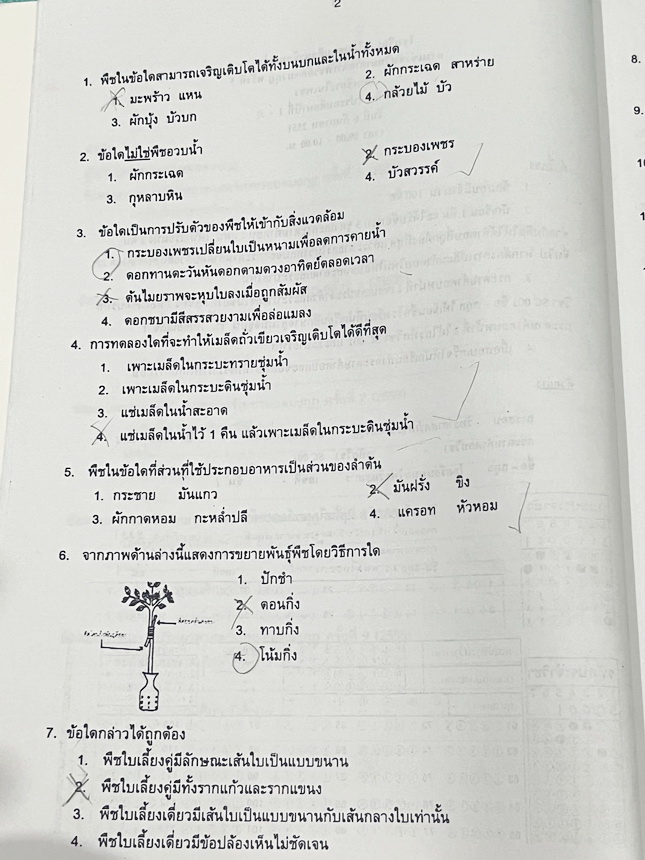 2
1. พืชในข้อใดสามารถเจริญเติบโตได้ทั้งบนบกและในน้ำทั้งหมด
1. มะพร้าว แหน
2. ผักกระเฉด สาหร่าย
3. ผักบุ้ง บัวบก
4. กล้วยไม้ บัว
2. ข้อใดไม่ใช่พืชอวบน้ำ
1. ผักกระเฉด
2. กระบองเพชร
3. กุหลาบหิน
4. บัวสวรรค์
3. ข้อใดเป็นการปรับตัวของพืชให้เข้ากับสิ่งแวดล้อม
1. กระบองเพชรเปลี่ยนใบเป็นหนามเพื่อลดการคายน้ำ
2. ดอกทานตะวันหันดอกตามดวงอาทิตย์ตลอดเวลา
3. ต้นไมยราพจะหุบใบลงเมื่อถูกสัมผัส
4. ดอกชบามีสีสรรสวยงามเพื่อล่อแมลง
4. การทดลองใดที่จะทำให้เมล็ดถั่วเขียวเจริญเติบโตได้ดีที่สุด
1. เพาะเมล็ดในกระบะทรายชุ่มน้ำ
2. เพาะเมล็ดในกระบะดินชุ่มน้ำ
3. แช่เมล็ดในน้ำสะอาด
4. แช่เมล็ดในน้ำไว้ 1 คืน แล้วเพาะเมล็ดในกระบะดินชุ่มน้ำ
5. พืชในข้อใดที่ส่วนที่ใช้ประกอบอาหารเป็นส่วนของลำต้น
1. กระชาย มันแกว
2. มันฝรั่ง ขิง
3. ผักกาดหอม กะหล่ำปลี
4. แครอท หัวหอม
6. จากภาพด้านล่างนี้แสดงการขยายพันธุ์พืชโดยวิธีการใด
1. ปักชำ
2. ตอนกิ่ง
3. ทาบกิ่ง
4. โน้มกิ่ง
7. ข้อใดกล่าวได้ถูกต้อง
1. พืชใบเลี้ยงคู่มีลักษณะเส้นใบเป็นแบบขนาน
2. พืชใบเลี้ยงคู่มีทั้งรากแก้วและรากแขนง
3. พืชใบเลี้ยงเดี่ยวมีเส้นใบเป็นแบบขนานกับเส้นกลางใบเท่านั้น
4. พืชใบเลี้ยงเดี่ยวมีข้อปล้องเห็นไม่ชัดเจน
8.
9.